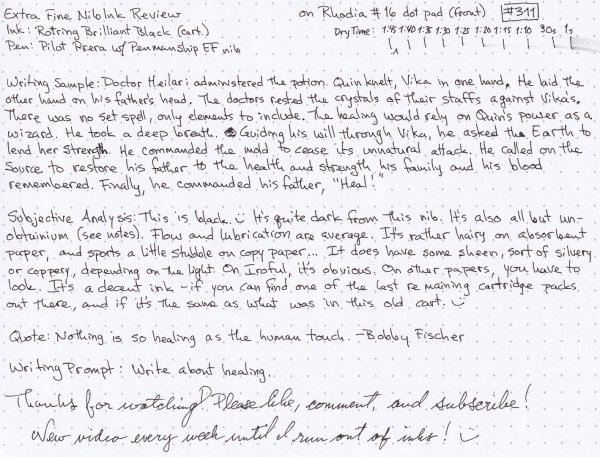 Extra Fine Nib Ink Review on Rhodia #16 dot pad (front) #311
Ink: Rotring Brilliant Black (cart.) Dry Time: 1:45 1:40 1:35 1:30 1:25 1:20 1:15 1:10 30s 1s
Pen: Pilot Prera w/ Penmanship EF nib
Writing Sample: Doctor Heilari administered the potion. Quin knelt, Vika in one hand. He laid the
other hand on his father's head. The doctors rested the crystals of their staffs against Vika's.
There was no set spell, only elements to include. The healing would rely on Quin's power as a
wizard. He took a deep breath. Guiding his will through Vika, he asked the Earth to
lend her strength. He commanded the mold to cease its unnatural attack. He called on the
Source to restore his father to the health and strength his family and his blood
remembered. Finally, he commanded his father, "Heal!"
Subjective Analysis: This is black. It's quite dark from this nib. It's also all but un-
obtainium (see notes). Flow and lubrication are average. It's rather hairy on absorbent
paper, and sports a little stubble on copy paper... It does have some sheen, sort of silvery
or coppery, depending on the light. On Iroful, it's obvious. On other papers, you have to
look. It's a decent ink - if you can find one of the last remaining cartridge packs
out there, and if it's the same as what was in this old cart.
Quote: Nothing is so healing as the human touch. -Bobby Fischer
Writing Prompt: Write about healing.
Thanks for watching! Please like, comment, and subscribe!
New video every week until I run out of inks!